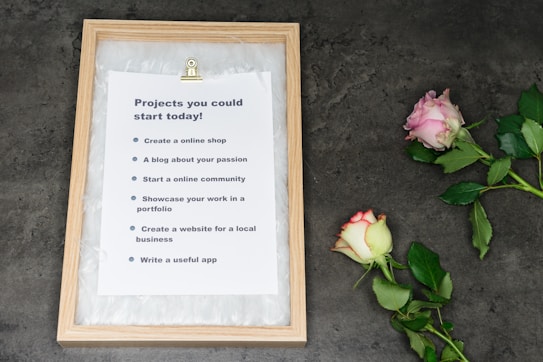 Projects you could
start today!
Create a online shop
A blog about your passion
Start a online community
Showcase your work in a
portfolio
Create a website for a local
business
Write a useful app